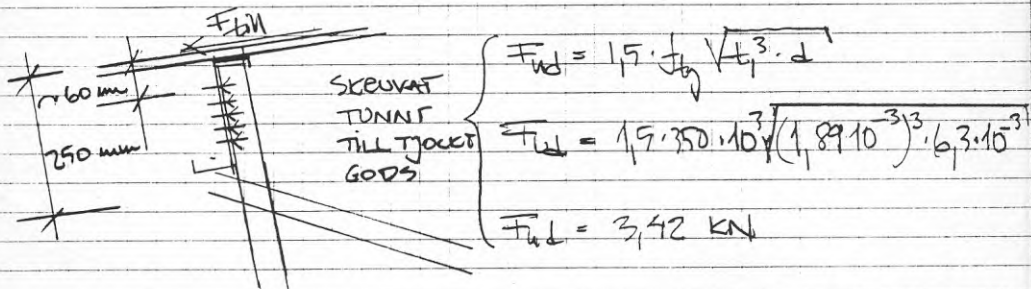 Ftill
~60 mm
250 mm
SKRUVAT
TUNNT
TILL TJOCKT
GODS
Fud = 1,5 · fty √t₁³ · d
Fud = 1,5 · 350 · 10³ √(1,89 10⁻³)³ · 6,3 · 10⁻³
Fud = 3,42 KN